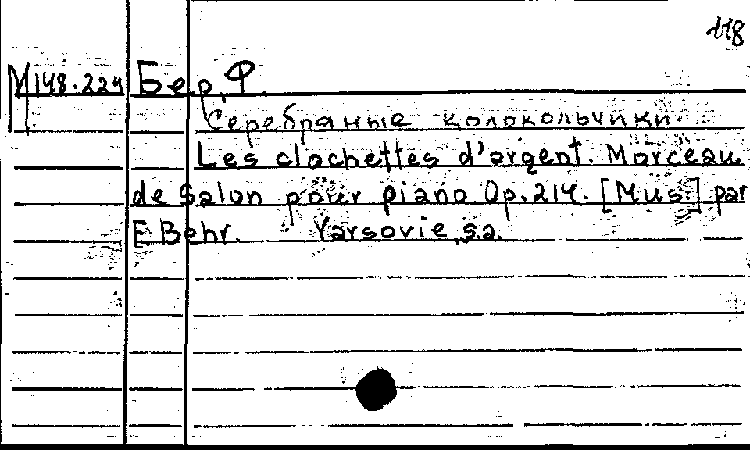 118
M148.224 Бер, Ф.
Серебряные колокольчики.
Les clochettes d'argent. Morceau
de Salon pour piano Op. 214. [Mus.] par
F. Behr. Varsovie, s.a.